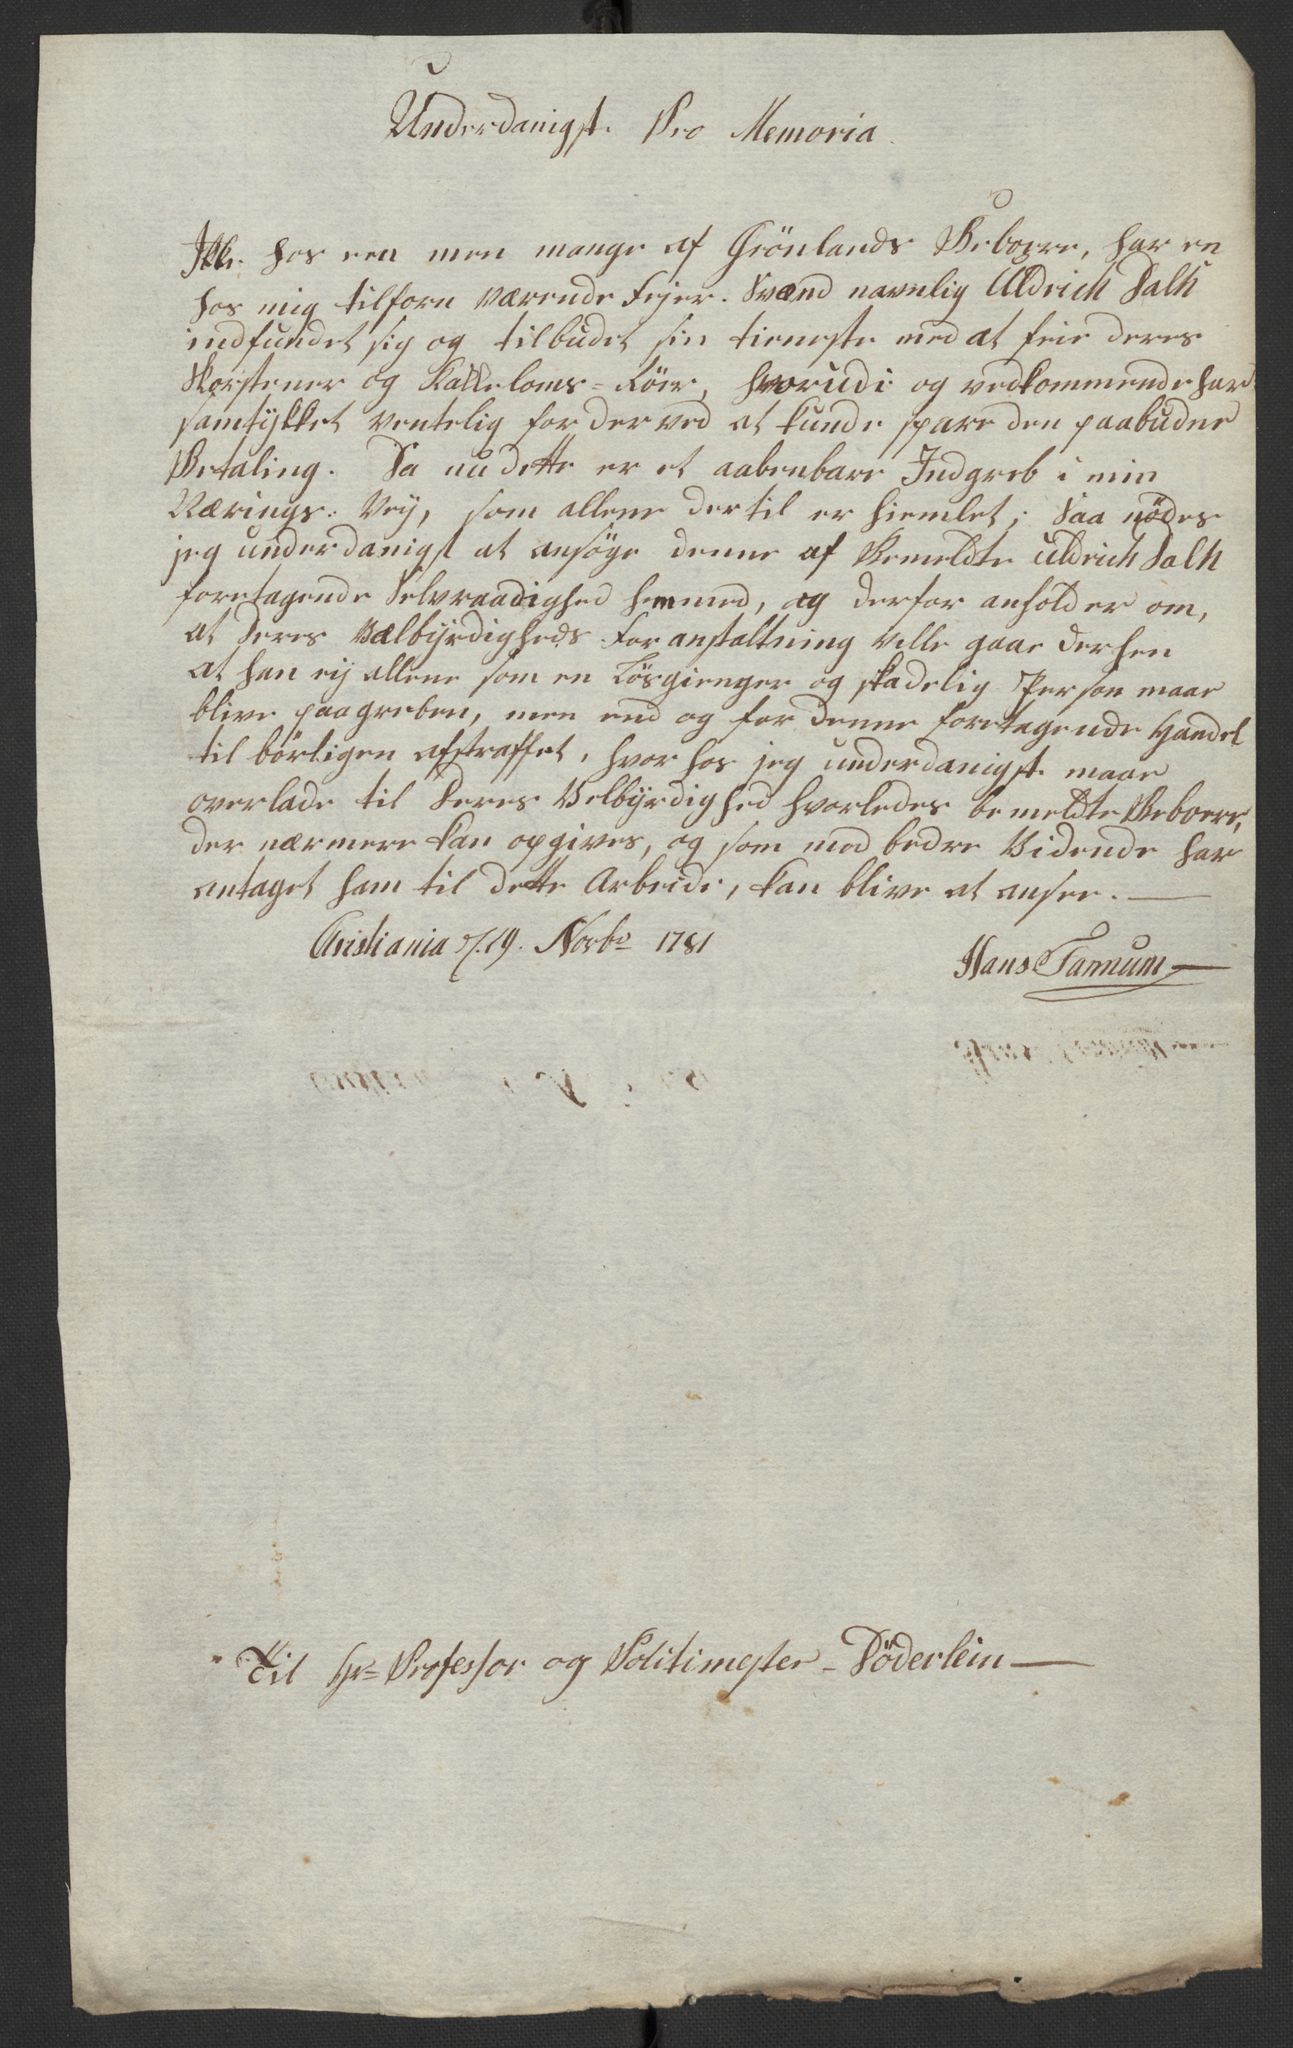 Underdanigst Pro Memoria.
Ikke hos een men mange af Grönlands Beboere, har en
hos mig tilforn værende Fejer-Svænd navnlig Uldrich Dalk
indfundet sig og tilbudet sin tieneste med at feie deres
Skorstener og Kakkeloms-Röir, hvorudi og vedkommende har
samtykket ventelig for derved at kunde spare den paabudne
Betaling. Da nu dette er et aabenbare Indgreb i min
Nærings-Vey, som allene dertil er hiemlet; Saa nödes
jeg underdanigst at ansöge denne af Bemeldte Uldrich Dalk
foretagende Selvraadighed hemmed, og derfor anholder om,
at Deres Vælbyrdigheds Foranstaltning ville gaae derhen
at han eij allene som en Lösgienger og skadelig Person maae
blive paagreben, men end og for denne foretagende Handel
til börligen afstraffet, hvorhos jeg underdanigst maae
overlade til Deres Velbyrdighed hvorledes bemeldte Beboere,
der nærmere kan opgives, og som mod bedre Vidende har
antaget ham til dette Arbeide, kan blive at ansee.
Christiania d. 19. Novbr 1781
Hans Tannum
Til Hr= Professor og Politimester - Döderlein